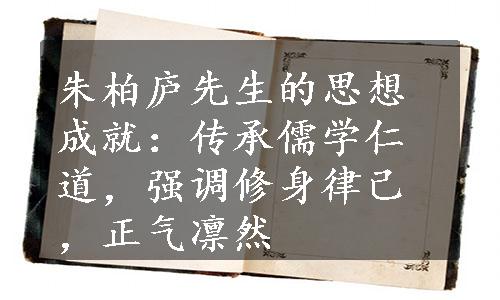 朱柏庐先生的思想
成就：传承儒学仁
道，强调修身律己
，正气凛然